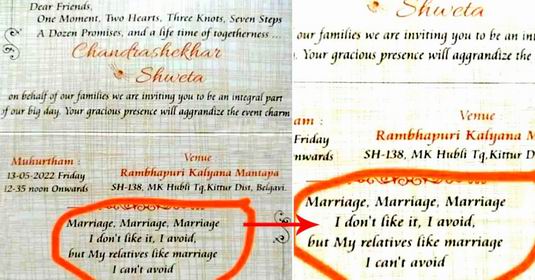 Dear Friends,
One Moment, Two Hearts, Three Knots, Seven Steps
A Dozen Promises, and a life time of togetherness ...
Chandrashekhar
Shweta
on behalf of our families we are inviting you to be an integral part
of our big day. Your gracious presence will aggrandize the event charm
Muhurtham :
13-05-2022 Friday
12-35 noon Onwards
Venue
Rambhapuri Kalyana Mantapa
SH-138, MK Hubli Tq.Kittur Dist, Belgavi.
Marriage, Marriage, Marriage
I don't like it, I avoid,
but My relatives like marriage
I can't avoid
Shweta
our families we are inviting you to be an int
. Your gracious presence will aggrandize the
am :
Friday
nwards
Venue
Rambhapuri Kalyana M
SH-138, MK Hubli Tq.Kittur D
Marriage, Marriage, Marriage
I don't like it, I avoid,
but My relatives like marriage
I can't avoid